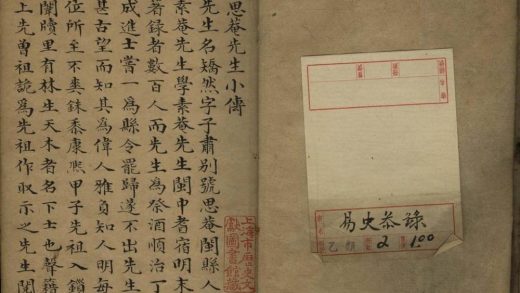 易史叅錄
2
1.00
思菴先生小傳
先生名矯然字子肅別號思菴閩縣人
素菴先生學素菴先生閩中耆宿明末
著錄者數百人而先生為祭酒順治丁
成進士嘗一為縣令罷歸遂不出先生
甚古望而知其為偉人雅負知人明每
位所至不爽銖黍康熈甲子先祖入鎖
闈牘里有林生天木者名下士也聲籍
上先曾祖詭為先祖作取示之先生閱
上海市歷史文
獻圖書館藏